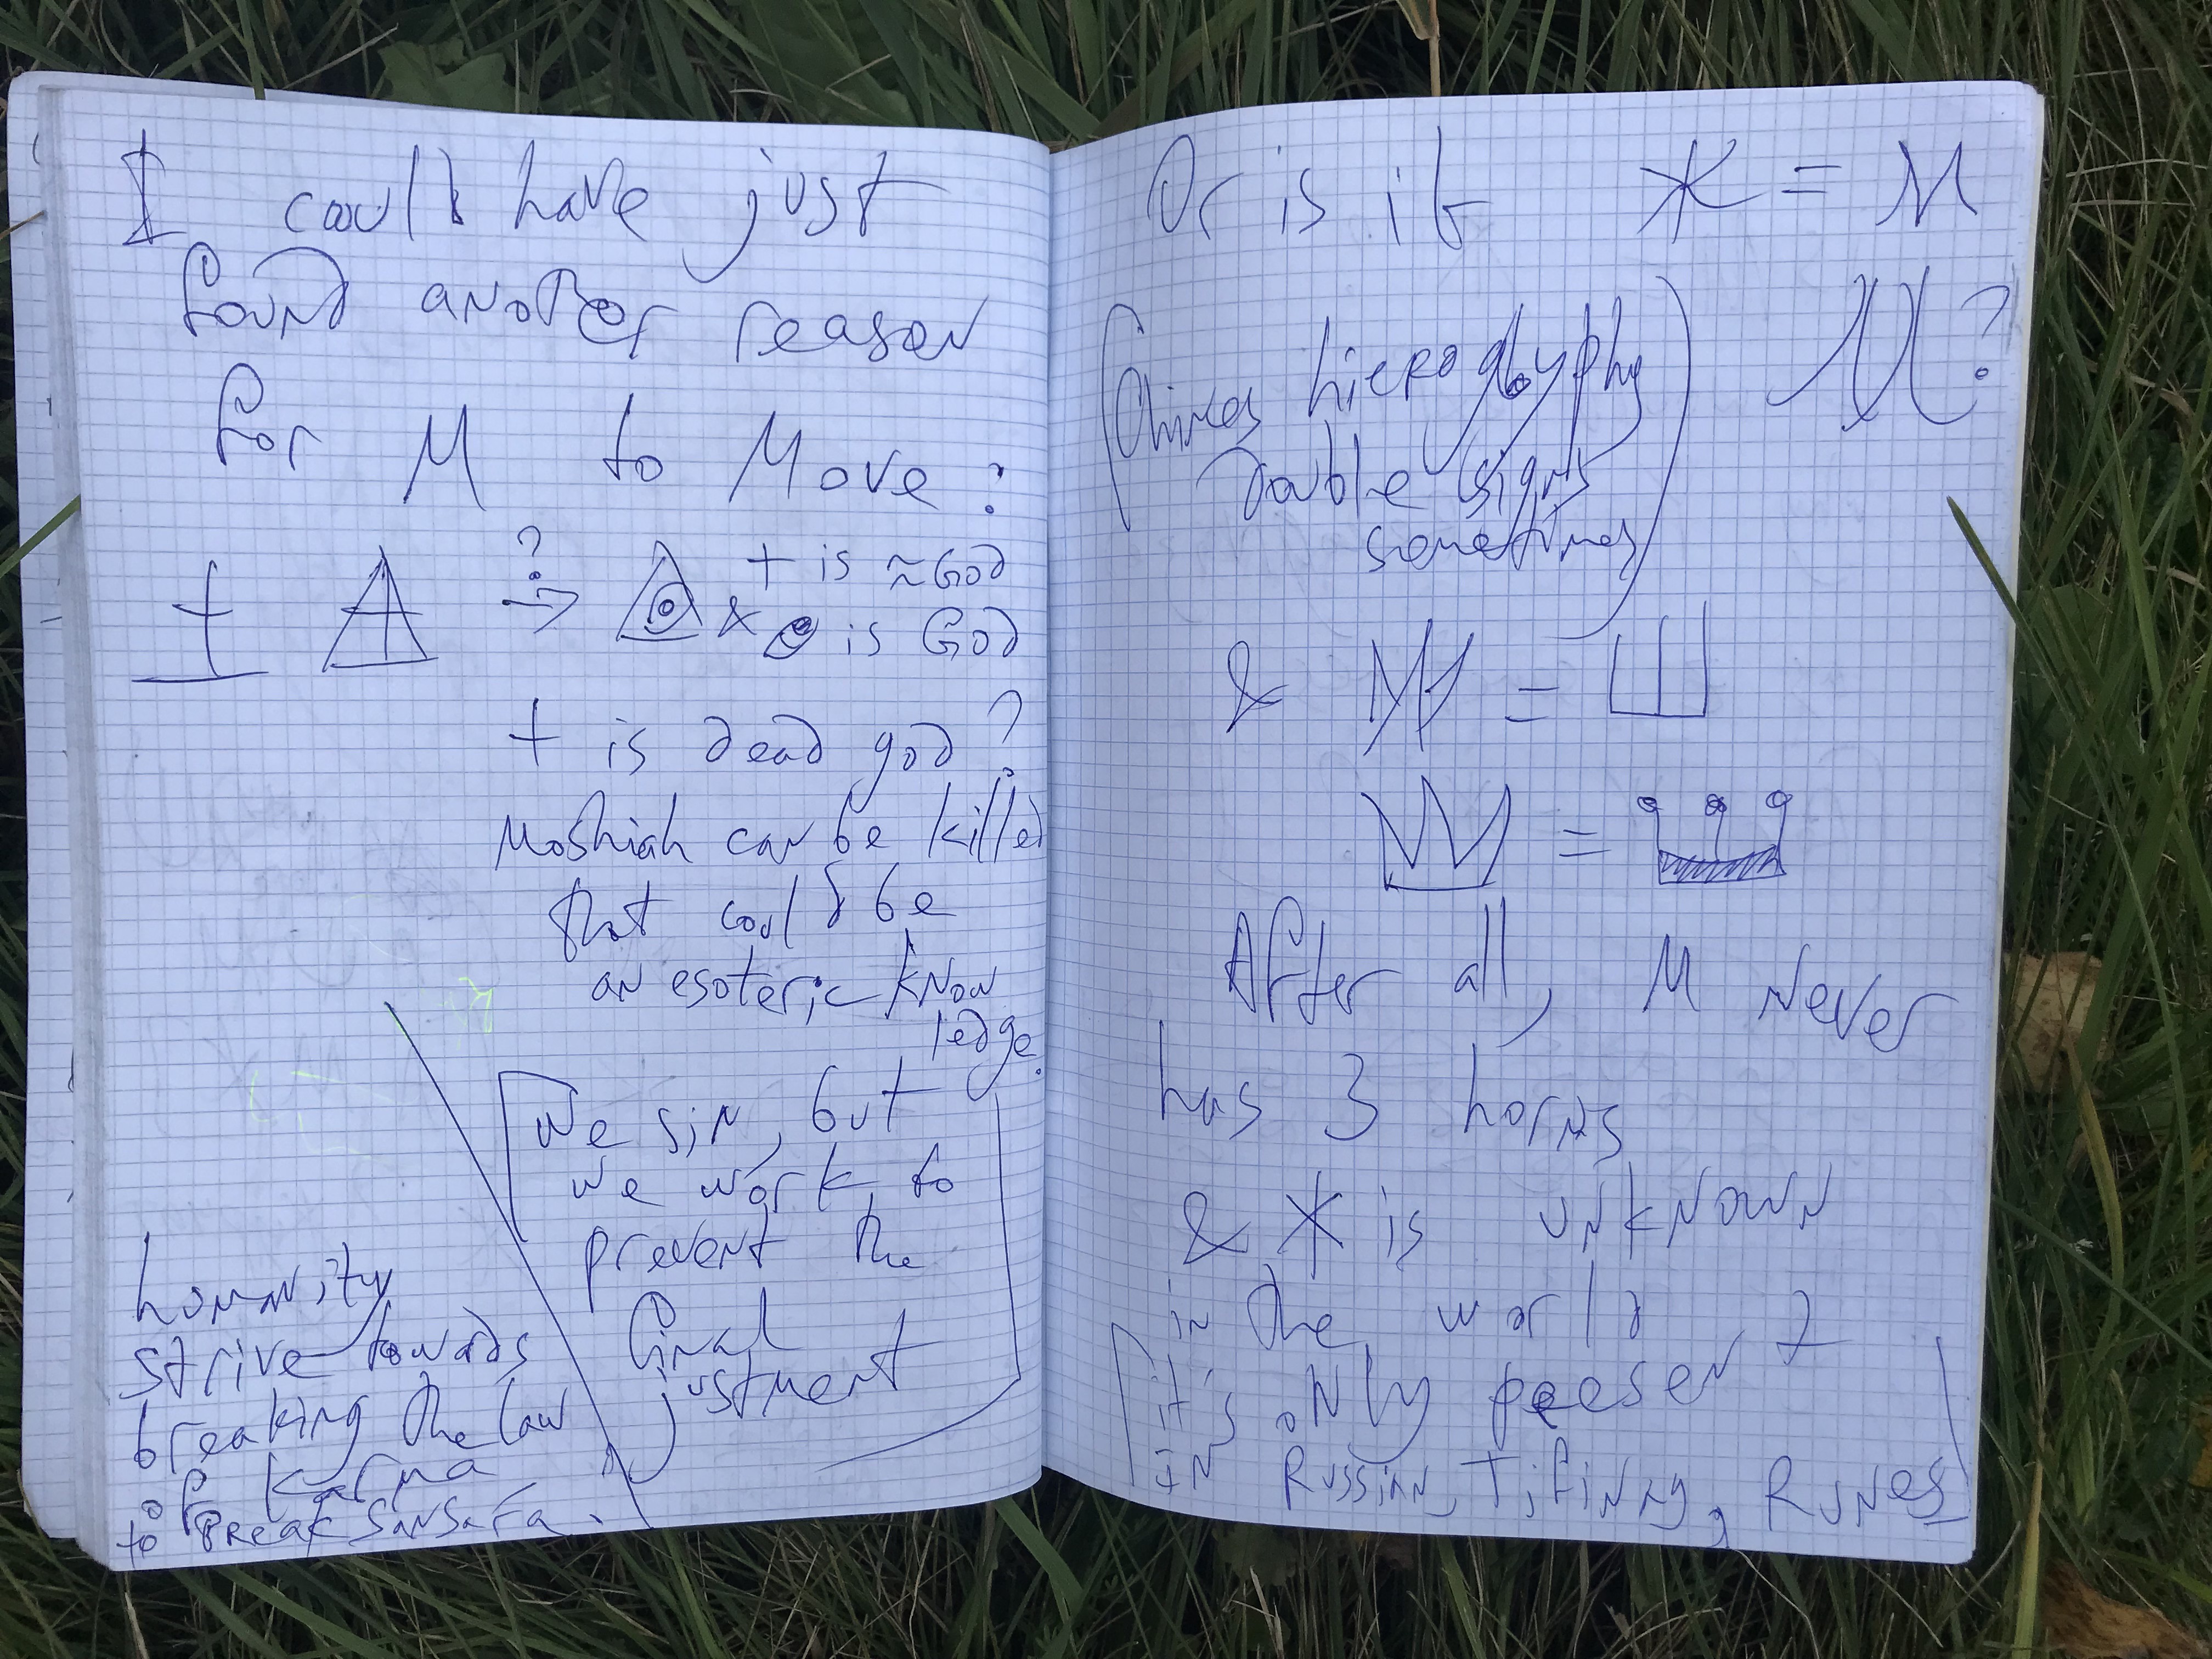 I could have just
found another reason
for M to Move :
? + is ≈ God
→ & is God
+ is dead god ?
Moshiah can be killed
that could be
an esoteric know
ledge.
We sin but
we work to
prevent the
final
justment
humanity
strive towards
breaking the law
of Karma
to break sansara.
Or is it Ж = M
Chines
hieroglyphy
double signs
sometimes
& = Ш
M =
After all, M never
has 3 horns
& Ж is unknown
in the world ?
it's only presen
in Russian, Tifinay, Runes